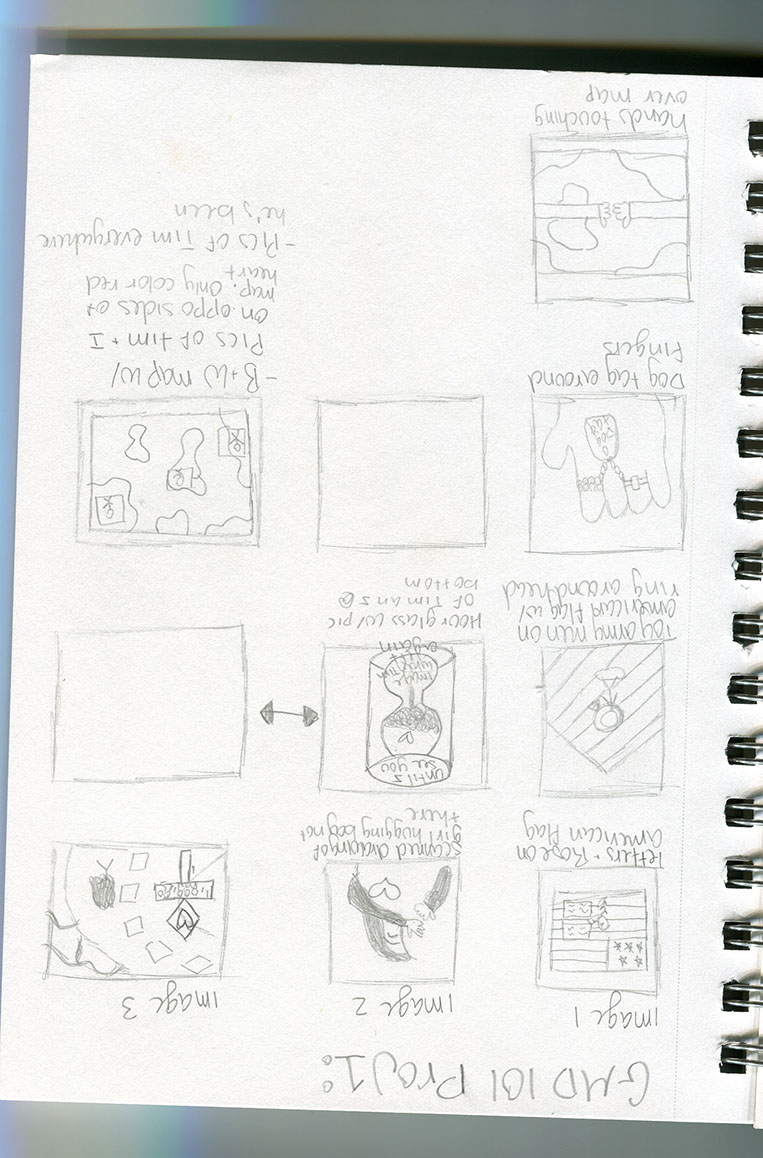 GMD 101 Proj 1:
Image 1
Image 2
Image 3
letters + Rose on
american flag
scanned drawing of
girl hugging boy not
there
Toy army men on
american flag w/
ring around head
until I
see you
again
Hour glass w/ pic
of Tim an I @
bottom
Dog tag around
Fingers
- B+W map w/
Pics of Tim + I
on oppo sides of
map. only color red
heart
- Pics of Tim everywhere
he's been
hands touching
over map